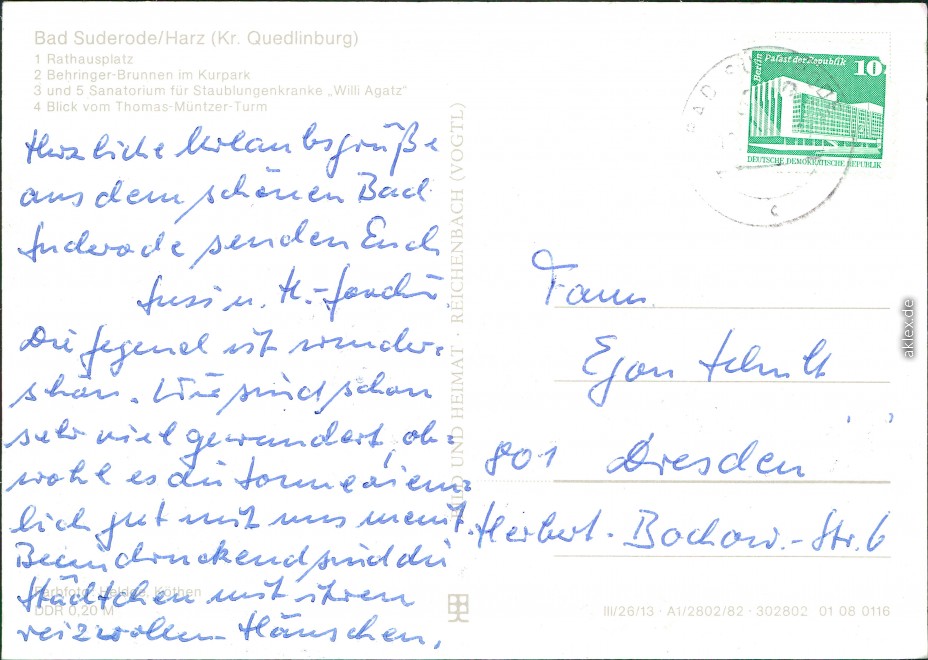 Bad Suderode/Harz (Kr. Quedlinburg)
1 Rathausplatz
2 Behringer-Brunnen im Kurpark
3 und 5 Sanatorium für Staublungenkranke „Willi Agatz“
4 Blick vom Thomas-Müntzer-Turm
Herzliche Urlaubsgrüße
aus dem schönen Bad
Suderode senden Euch
u. H.-
Die Gegend ist wunder-
schön. Wir sind schon
sehr viel gewandert, ob-
wohl es die Sonne ziem-
lich gut mit uns meint.
Beeindruckend sind die
Städtchen mit ihren
reizvollen Häuschen,
Farbfoto: Köthen
DDR 0,20 M
BILD UND HEIMAT · REICHENBACH (VOGTL)
Berlin Palast der Republik 10
DEUTSCHE DEMOKRATISCHE REPUBLIK
BAD SUDERODE
c
Fam.
Egon Schult
801 Dresden
Herbert-Bochow-Str. 6
III/26/13 · A1/2802/82 · 302802 01 08 0116
aklex.de